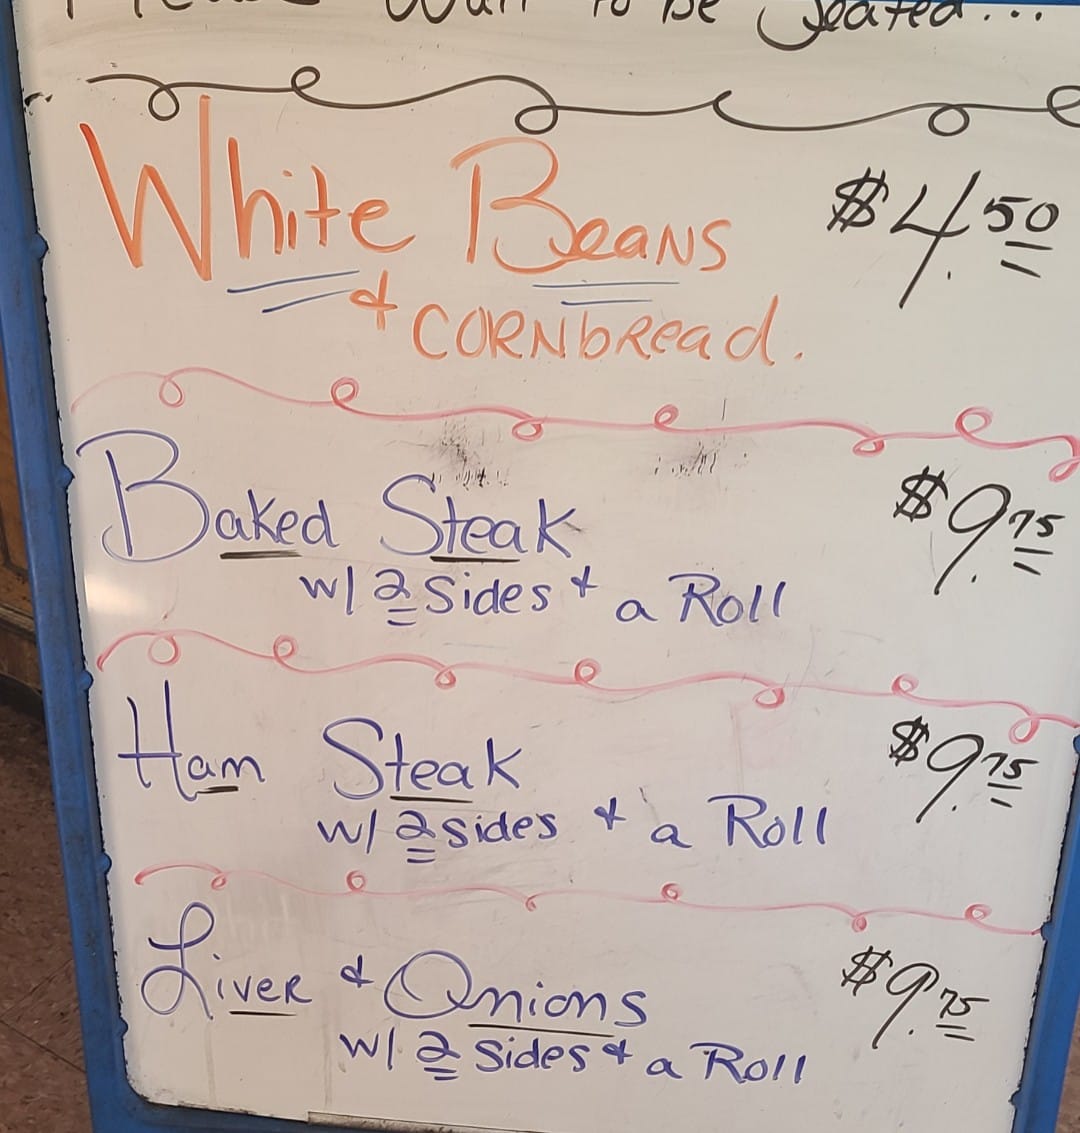 Please Wait to be Seated...
White Beans $4.50
& CORNbRead.
Baked Steak $9.75
w/ 2 Sides & a Roll
Ham Steak $9.75
w/ 2 sides & a Roll
Liver & Onions $9.75
w/ 2 Sides & a Roll